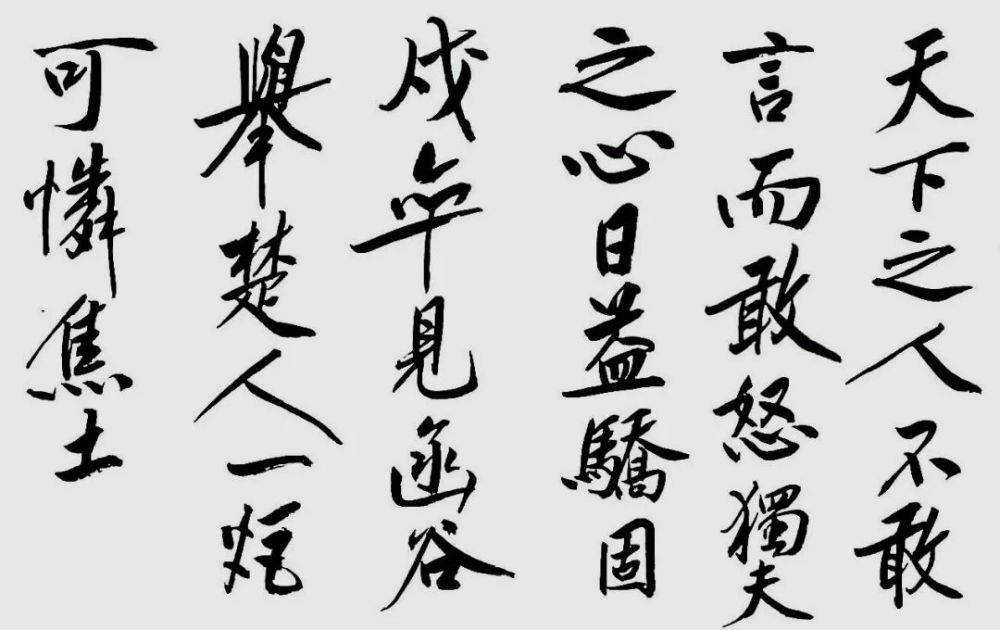 天下之人不敢
言而敢怒獨夫
之心日益驕固
戍卒見函谷
舉楚人一炬
可憐焦土